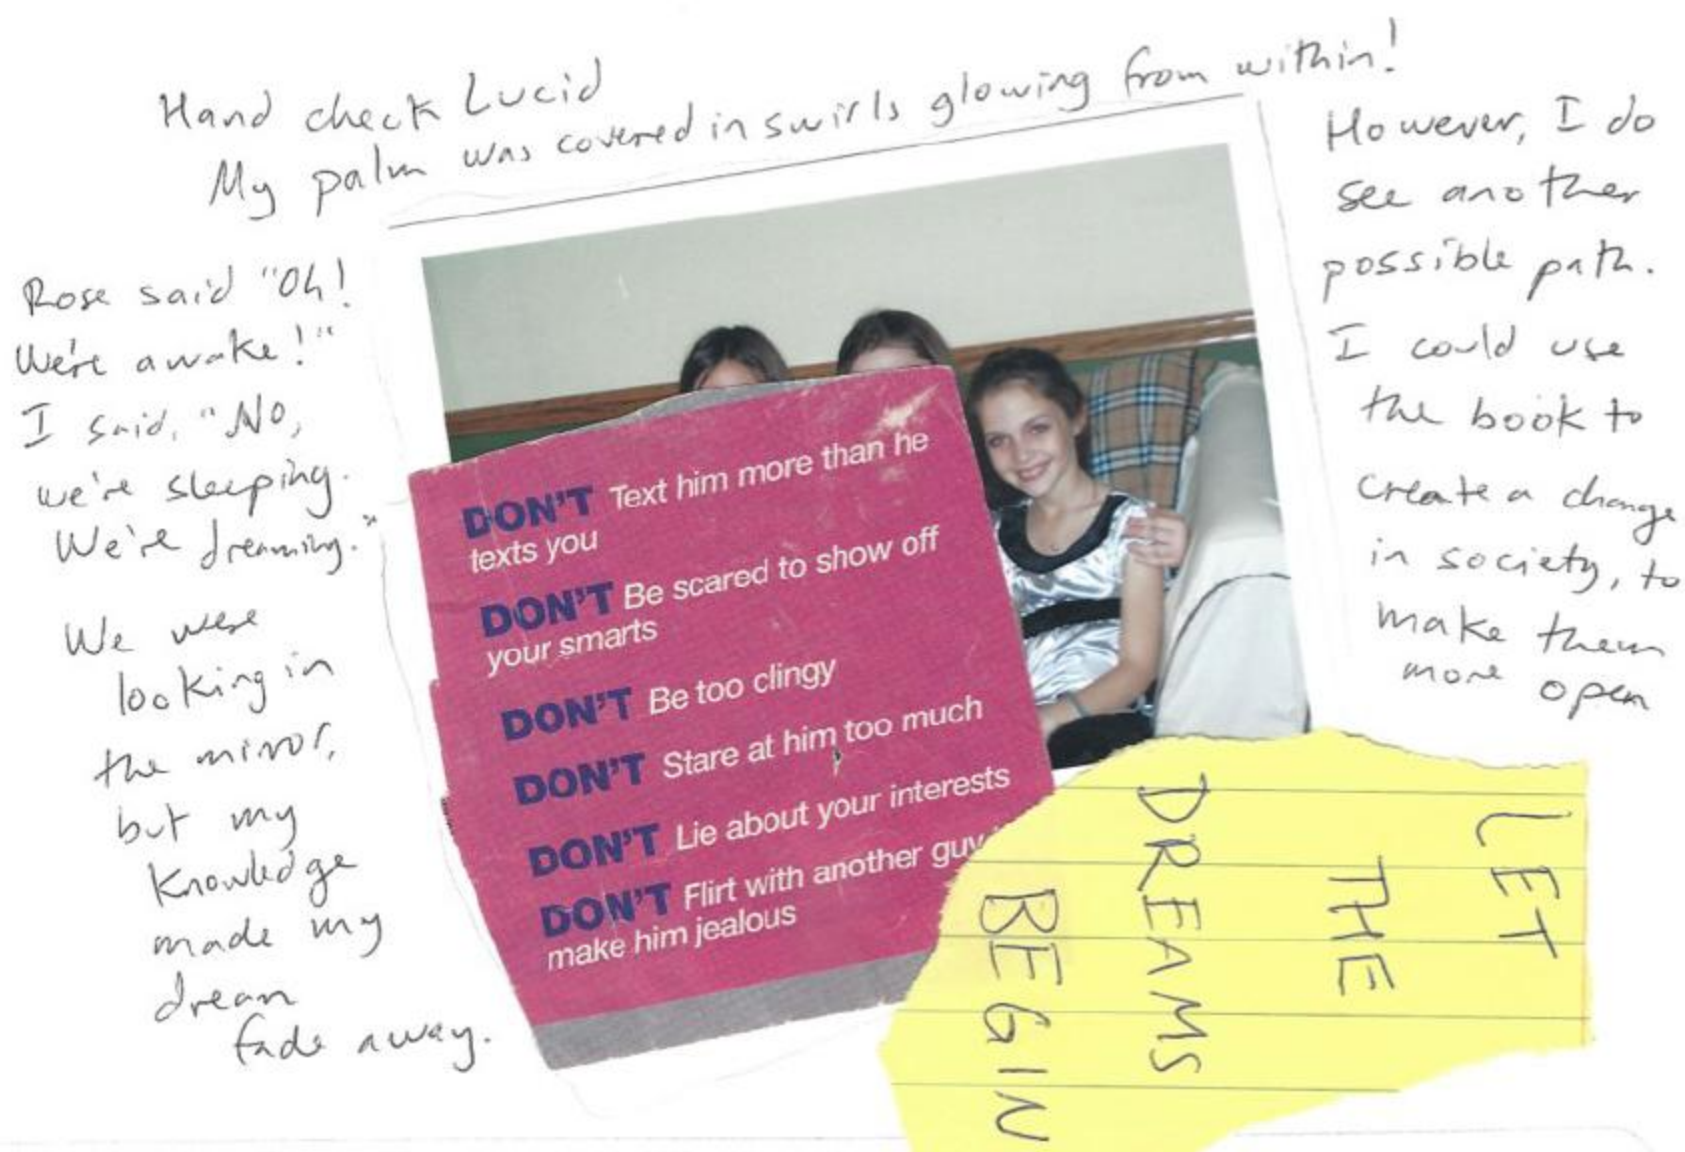 Hand check Lucid
My palm was covered in swirls glowing from within!
Rose said "Oh!
We're awake!"
I said, "No,
we're sleeping.
We're dreaming."
We were
looking in
the mirror,
but my
knowledge
made my
dream
fade away.
DON'T Text him more than he
texts you
DON'T Be scared to show off
your smarts
DON'T Be too clingy
DON'T Stare at him too much
DON'T Lie about your interests
DON'T Flirt with another guy
make him jealous
However, I do
see another
possible path.
I could use
the book to
create a change
in society, to
make them
more open
LET
THE
DREAMS
BEGIN